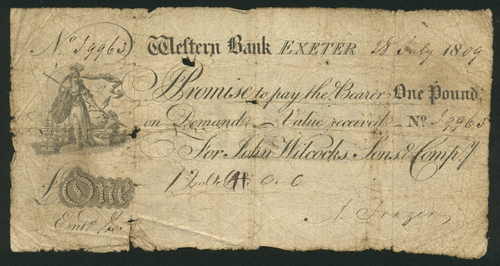 No. J9963 Western Bank EXETER 28 July 1809
I Promise to pay the Bearer One Pound
on Demand Value received No. J9963
For John Wilcocks, Sons & Comp.y
£One
Entd